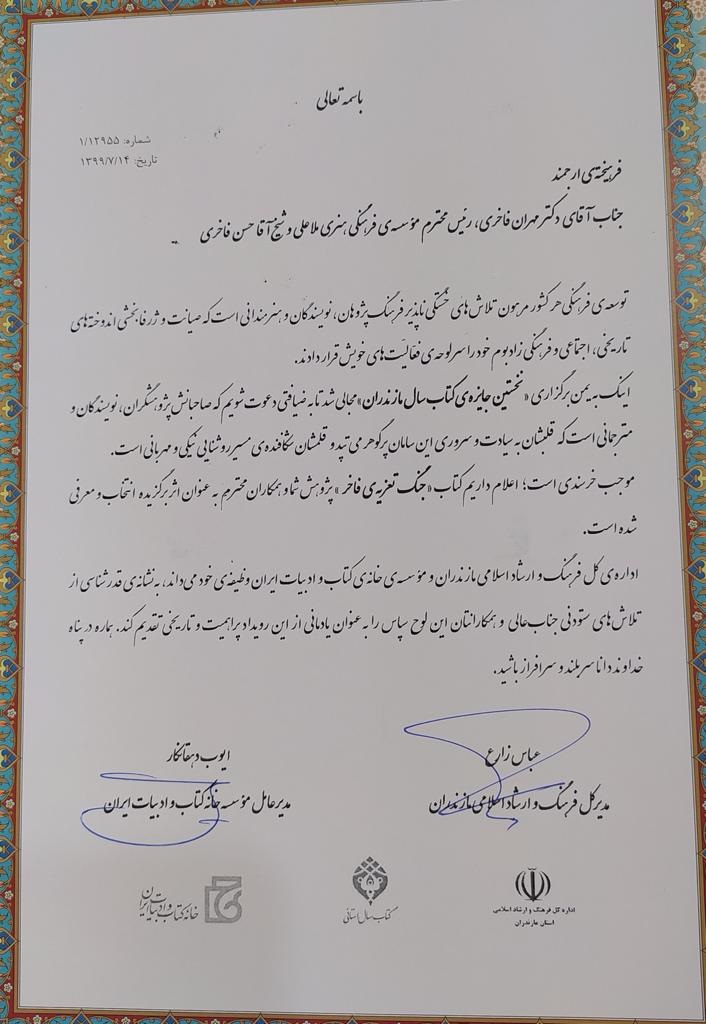 باسمه تعالی
شماره: ۱/۱۲۹۵۵
تاریخ: ۱۳۹۹/۷/۱۴
فرهیخته‌ی ارجمند
جناب آقای دکتر مهران فاخری، رئیس محترم مؤسسه‌ی فرهنگی هنری ملاعلی و شیخ آقا حسن فاخری
توسعه‌ی فرهنگی هر کشور مرهون تلاش‌های خستگی ناپذیر فرهنگ پژوهان، نویسندگان و هنرمندانی است که صیانت و ژرفابخشی اندوخته‌های
تاریخی، اجتماعی و فرهنگی زادبوم خود را سرلوحه‌ی فعالیت‌های خویش قرار دادند.
اینک به یمن برگزاری «نخستین جایزه‌ی کتاب سال مازندران» مجالی شد تا به ضیافتی دعوت شویم که صاحبانش پژوهشگران، نویسندگان و
مترجمانی است که قلبشان به سیادت و سروری این سامان پرگوهر می‌تپد و قلمشان شکافنده‌ی مسیر روشنایی نیکی و مهربانی است.
موجب خرسندی است؛ اعلام داریم کتاب «جنگ تعزیه‌ی فاخر» پژوهش شما و همکاران محترم به عنوان اثر برگزیده انتخاب و معرفی
شده است.
اداره‌ی کل فرهنگ و ارشاد اسلامی مازندران و مؤسسه‌ی خانه‌ی کتاب و ادبیات ایران وظیفه‌ی خود می‌داند، به نشانه‌ی قدرشناسی از
تلاش‌های ستودنی جناب‌عالی و همکارانتان این لوح سپاس را به عنوان یادمانی از این رویداد پراهمیت و تاریخی تقدیم کند. هماره در پناه
خداوند دانا سربلند و سرافراز باشید.
عباس زارع
مدیرکل فرهنگ و ارشاد اسلامی مازندران
ایوب دهقانکار
مدیرعامل مؤسسه خانه کتاب و ادبیات ایران
اداره کل فرهنگ و ارشاد اسلامی
استان مازندران
کتاب سال استانی
خانه کتاب و ادبیات ایران